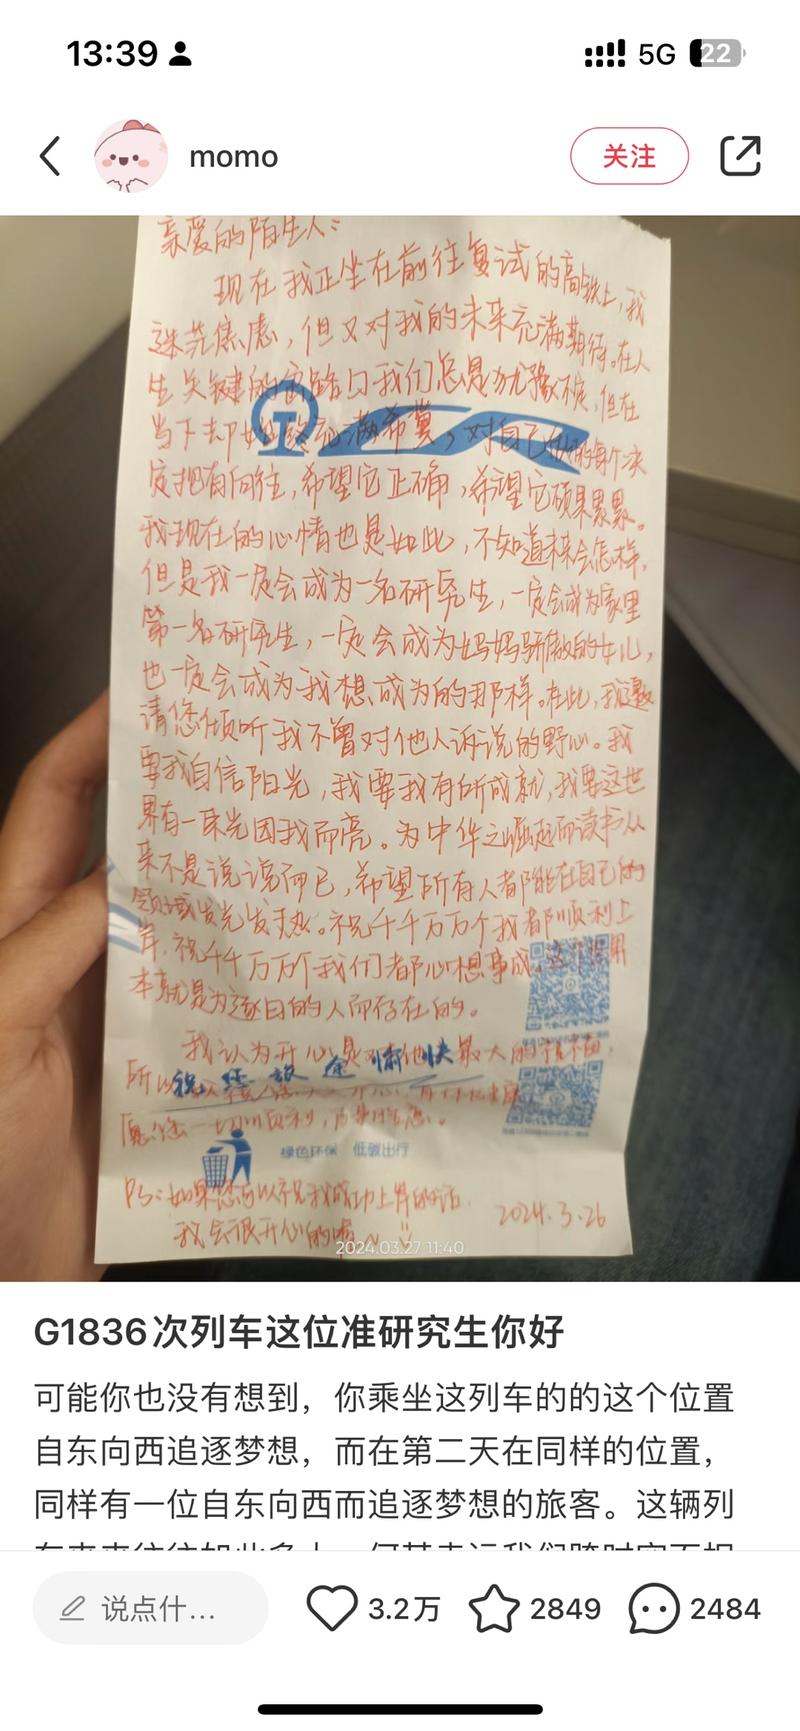 13:39
5G
22
momo
关注
亲爱的陌生人：
现在我正坐在前往复试的高铁上，我
迷茫焦虑，但又对我的未来充满期待。在人
生关键的岔路口我们总是犹豫不定，但在
当下却始终充满希冀，对自己做的每个决
定抱有向往，希望它正确，希望它硕果累累。
我现在的心情也是如此，不知道未来会怎样，
但是我一定会成为一名研究生，一定会成为家里
第一名研究生，一定会成为妈妈骄傲的女儿，
也一定会成为我想成为的那样。在此，我邀
请您倾听我不曾对他人诉说的野心。我
要我自信阳光，我要我有所成就，我要这世
界有一束光因我而亮。为中华之崛起而读书从
来不是说说而已，希望所有人都能在自己的
领域发光发热。祝千千万万个我都顺利上
岸，祝千千万万个我们都心想事成。这个世界
本就是为逐日的人而存在的。
我认为开心是对其他
最大的
所以祝您旅途愉快
愿您一切顺利，万事胜意。
绿色环保 低碳出行
PS：如果您可以祝我成功上岸的话，
我会很开心的喔~
2024.3.26
2024.03.27 11:40
G1836次列车这位准研究生你好
可能你也没有想到，你乘坐这列车的的这个位置
自东向西追逐梦想，而在第二天在同样的位置，
同样有一位自东向西而追逐梦想的旅客。这辆列
说点什...
3.2万
2849
2484